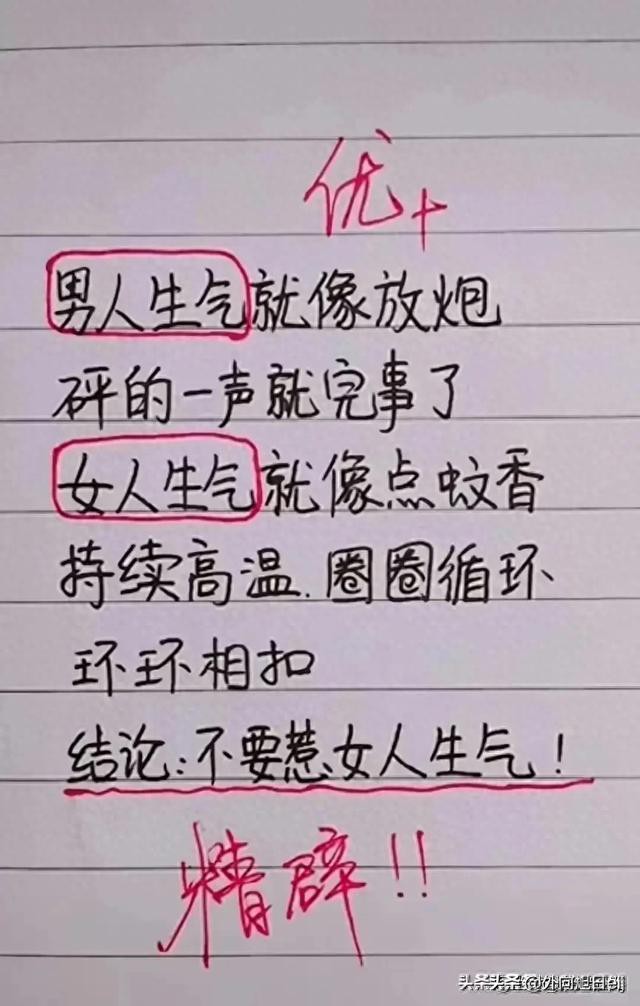 优+
男人生气就像放炮
砰的一声就完事了
女人生气就像点蚊香
持续高温.圈圈循环
环环相扣
结论:不要惹女人生气!
精辟!!